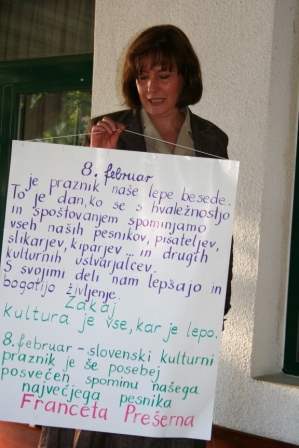 8. februar
je praznik naše lepe besede.
To je dan, ko se s hvaležnostjo
in spoštovanjem spominjamo
vseh naših pesnikov, pisateljev,
slikarjev, kiparjev ... in drugih
kulturnih ustvarjalcev.
S svojimi deli nam lepšajo in
bogatijo življenje.
Zakaj
kultura je vse, kar je lepo.
8. februar - slovenski kulturni
praznik je še posebej
posvečen spominu našega
največjega pesnika
Franceta Prešerna